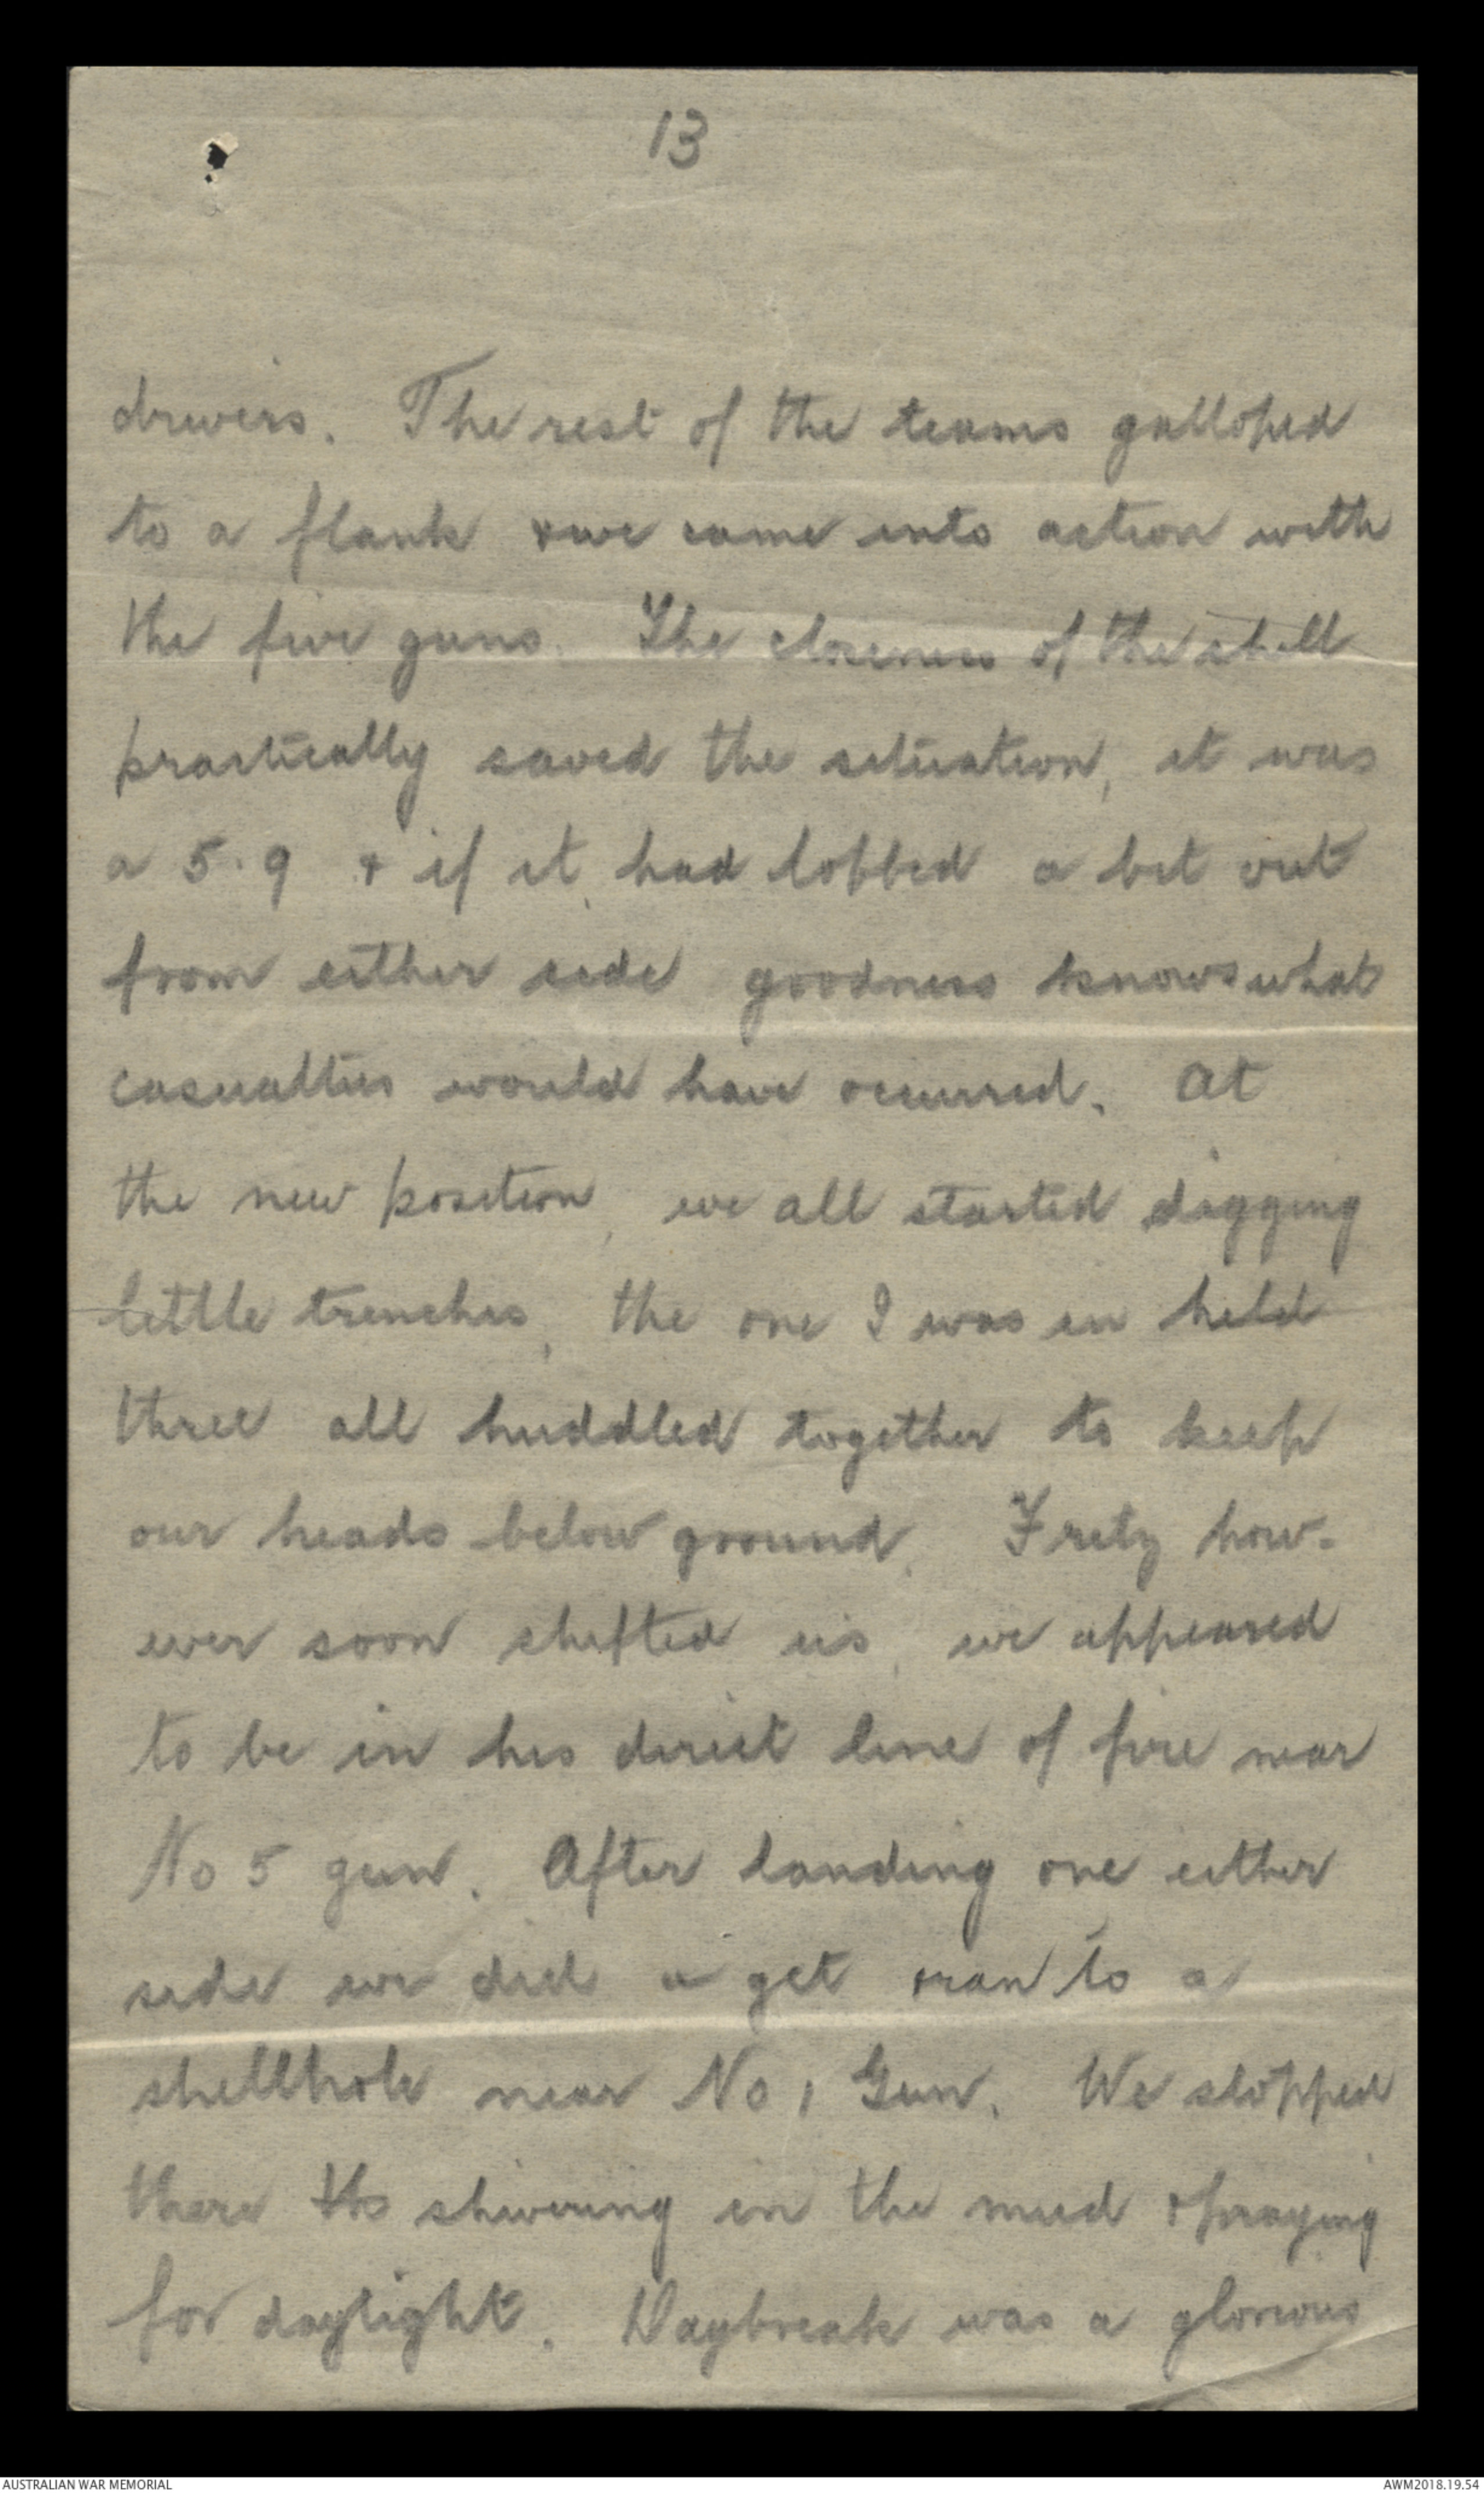 13
drivers. The rest of the teams galloped
to a flank & we came into action with
the five guns. The closeness of the shell
practically saved the situation, it was
a 5.9 & if it had lobbed a bit out
from either side goodness knows what
casualties would have occurred. At
the new position, we all started digging
little trenches, the one I was in held
three all huddled together to keep
our heads below ground. Fritz how-
ever soon shifted us, we appeared
to be in his direct line of fire near
No 5 gun. After landing one either
side we did a get & ran to a
shellhole near No 1 Gun. We stopped
there ths shivering in the mud & praying
for daylight. Daybreak was a glorious
AUSTRALIAN WAR MEMORIAL
AWM2018.19.54